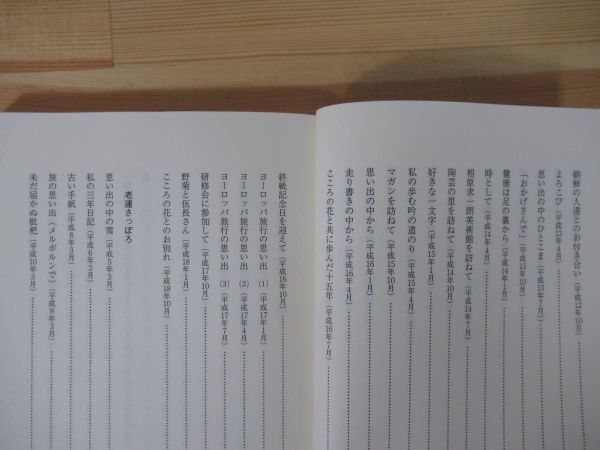 朝鮮の人達とのお付き合い（平成12年10月）
よろこび（平成13年4月）
思い出の中のひとこま（平成13年7月）
「おかげさんで」（平成13年10月）
健康は足の裏から（平成14年1月）
時として（平成14年4月）
相原求一朗美術館を訪ねて（平成14年7月）
陶芸の里を訪ねて（平成14年10月）
好きな一文字（平成15年1月）
私の歩む吟の道のり（平成15年4月）
マガンを訪ねて（平成15年10月）
思い出の中から（平成16年1月）
走り書きの中から（平成16年4月）
こころの花と共に歩んだ十五年（平成16年7月）
終戦記念日を迎えて（平成16年10月）
ヨーロッパ旅行の思い出（1）（平成17年1月）
ヨーロッパ旅行の思い出（2）（平成17年4月）
ヨーロッパ旅行の思い出（3）（平成17年7月）
研修会に参加して（平成17年10月）
野菊と伍長さん（平成18年1月）
こころの花とのお別れ（平成18年10月）
老連さっぽろ
思い出の中の雪（平成5年3月）
私の三年日記（平成6年3月）
古い手紙（平成8年3月）
旅の思い出（メルボルンで）（平成9年3月）
未だ届かぬ枇杷（平成10年3月）